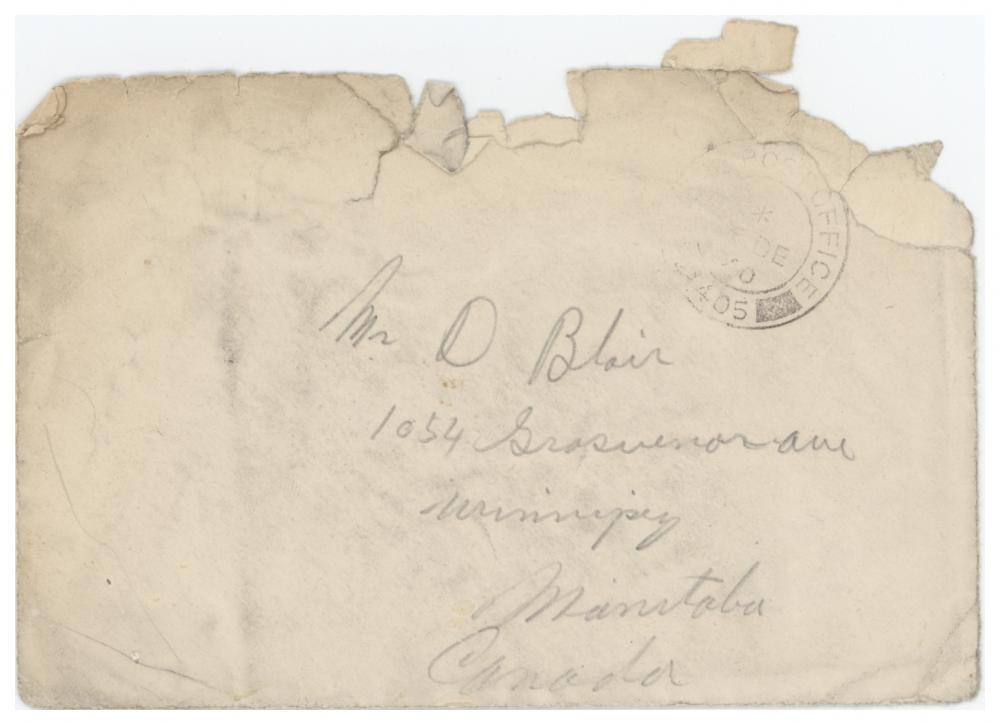 POST OFFICE
*
DE
405
Mr D Blair
1054 Grosvenor ave
Winnipeg
Manitoba
Canada